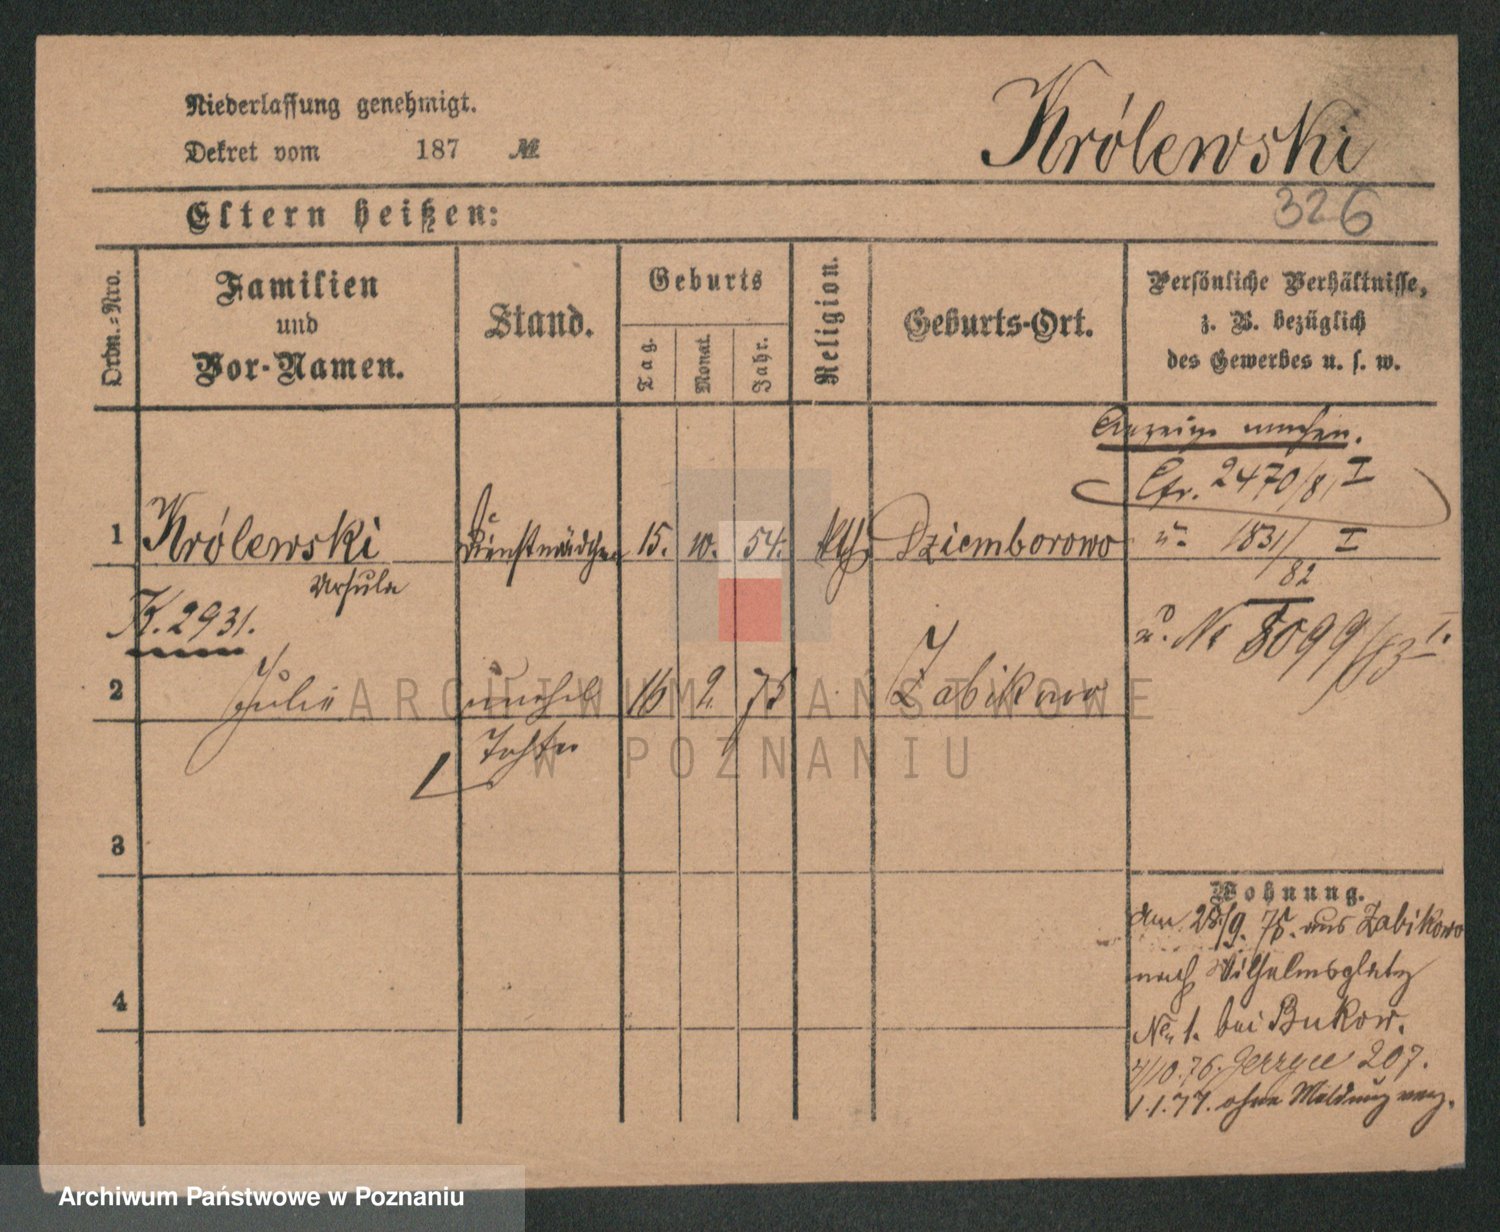 Niederlassung genehmigt.
Dekret vom 187 №
Królewski
326
Eltern heißen:
Ordn.-Nro.
Familien
und
Vor-Namen.
Stand.
Geburts
Tag.
Monat.
Jahr.
Religion.
Geburts-Ort.
Persönliche Verhältnisse,
z. B. bezüglich
des Gewerbes u. s. w.
Anzeige machen.
Cfr. 2470/81 I
1 Królewski Dienstmädchen 15. 10. 54. kth. Dziemborowo
u. 1831/82 I
Ursula
K. 2931.
u. No 8099/83 I.
2 Julie unehel 16 2. 75 Zabikowo
Tochter
3
4
Wohnung.
am 28/9. 75. aus Zabikowo
nach Wilhelmsplatz
No 1. bei Bukow.
4/10.76. Jerzyce 207.
1.1.77. ohne Meldung verz.
ARCHIWUM PAŃSTWOWE
W POZNANIU
Archiwum Państwowe w Poznaniu